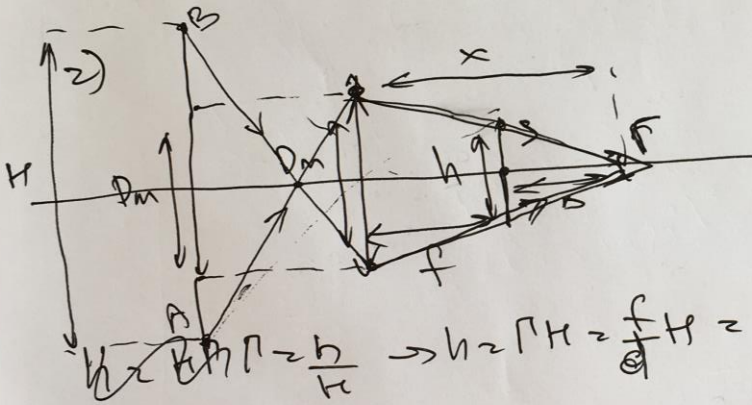 B
2)
x
H
D_M
D_M
h
F
f
A
Γ = h/H → h = ΓH = f/d H =